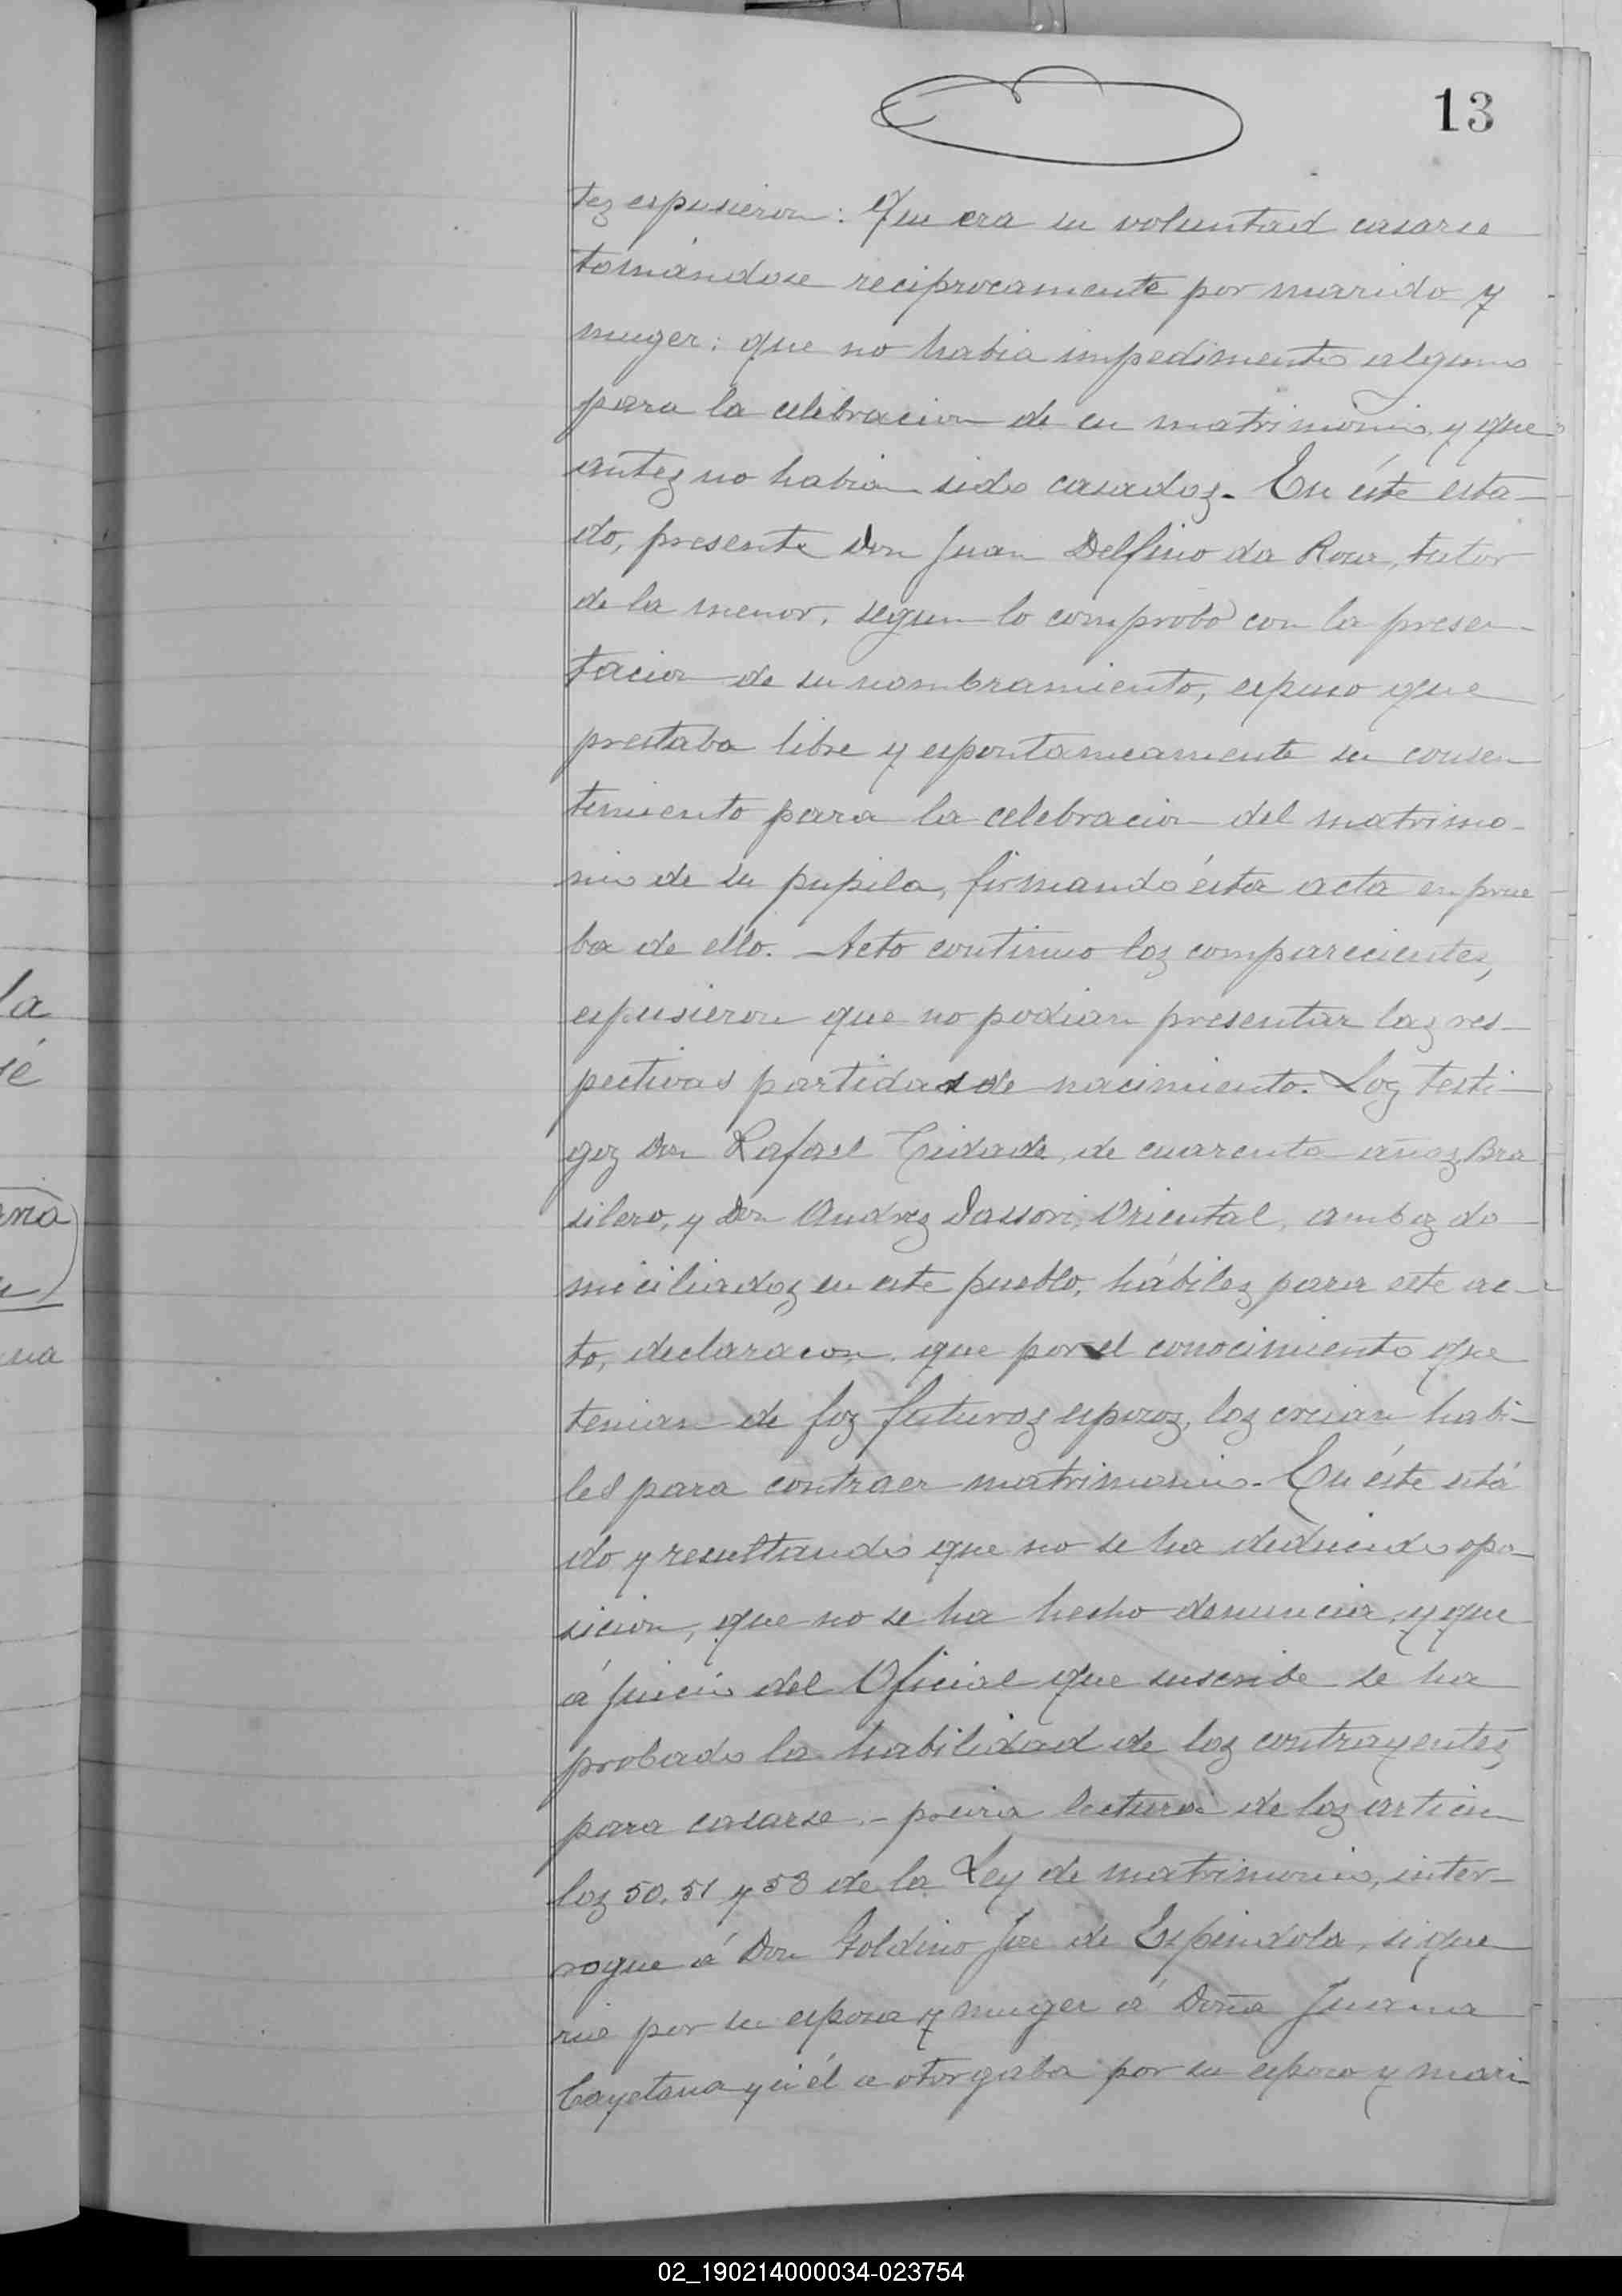 13
tes espusieron: Que era su voluntad casarse
tomándose reciprocamente por marido y
muger: que no habia impedimento alguno
para la celebracion de su matrimonio y que
antes no habian sido casados. En éste esta-
do, presente Don Juan Delfino da Rosa, tutor
de la menor, segun lo comprobó con la presen-
tacion de su nombramiento, espuso que
prestaba libre y espontaneamente su consen
timiento para la celebracion del matrimo-
nio de su pupila, firmando ésta acta en prue
ba de ello. Acto continuo los comparecientes,
espusieron que no podian presentar las res-
pectivas partidas de nacimiento. Los testi-
gos Don Rafael Cidade, de cuarenta años, Bra
silero, y Don Andres Dassori, Oriental, ambos do-
miciliados en este pueblo, hábiles para este ac-
to, declararon que por el conocimiento que
tenian de los futuros esposos, los creian habi-
les para contraer matrimonio. En éste está
do y resultando que no se ha deducido opo-
sicion, que no se ha hecho denuncia y que
á juicio del Oficial que suscribe se ha
probado la habilidad de los contrayentes,
para casarse.- prévia lectura de los articu
los 50, 51 y 53 de la Ley de matrimonio, inter-
rogue á Don Goldino José de Espindola, si que
ria por su esposa y muger á Doña Juana
Cayetana y si él se otorgaba por su esposo y mari-
la
sé
ana
ua
02_190214000034-023754